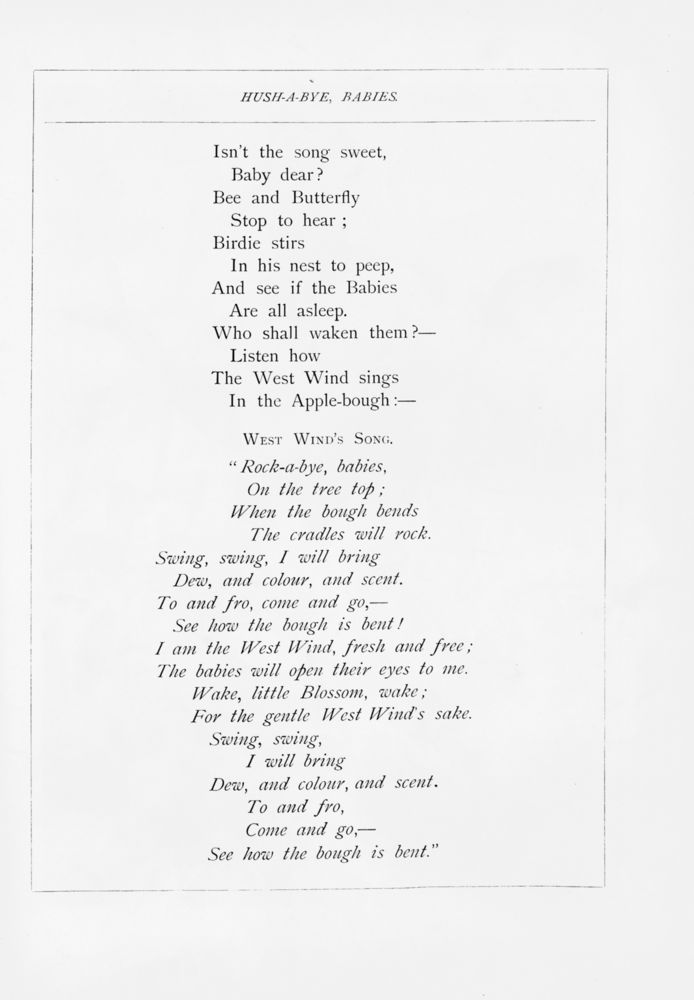 HUSH-A-BYE, BABIES.
Isn't the song sweet,
Baby dear?
Bee and Butterfly
Stop to hear;
Birdie stirs
In his nest to peep,
And see if the Babies
Are all asleep.
Who shall waken them?—
Listen how
The West Wind sings
In the Apple-bough:—
WEST WIND'S SONG.
"Rock-a-bye, babies,
On the tree top;
When the bough bends
The cradles will rock.
Swing, swing, I will bring
Dew, and colour, and scent.
To and fro, come and go,—
See how the bough is bent!
I am the West Wind, fresh and free;
The babies will open their eyes to me.
Wake, little Blossom, wake;
For the gentle West Wind's sake.
Swing, swing,
I will bring
Dew, and colour, and scent.
To and fro,
Come and go,—
See how the bough is bent."